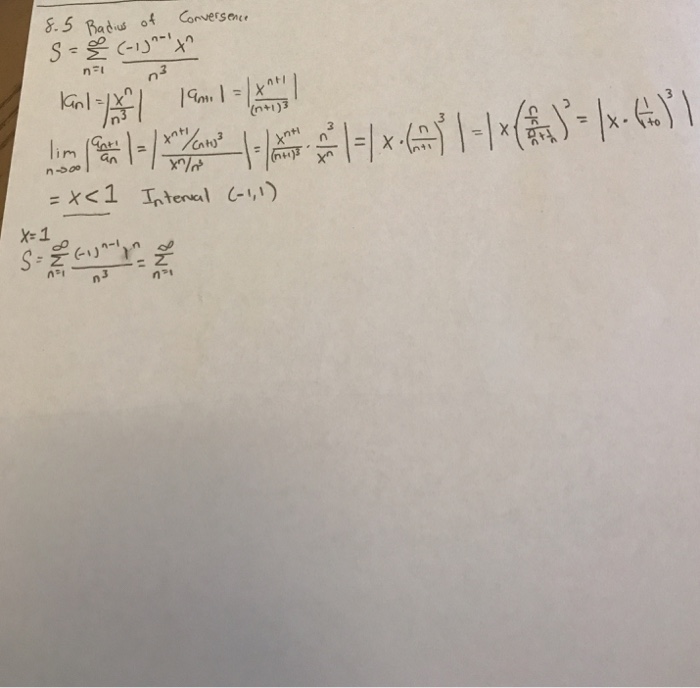 8.5 Radius of Convergence
S = ∑_{n=1}^{∞} (-1)^{n-1} x^n / n^3
|a_n| = |x^n / n^3| |a_{n+1}| = |x^{n+1} / (n+1)^3|
lim_{n→∞} |a_{n+1} / a_n| = |x^{n+1}/(n+1)^3 / x^n/n^3| = |x^{n+1} / (n+1)^3 · n^3 / x^n| = |x · (n / n+1)^3| = |x (n/n / n/n + 1/n)^3 = |x · (1 / 1+0)^3|
= x < 1 Interval (-1,1)
x=1
S = ∑_{n=1}^{∞} (-1)^{n-1} 1^n / n^3 = ∑_{n=1}^{∞}